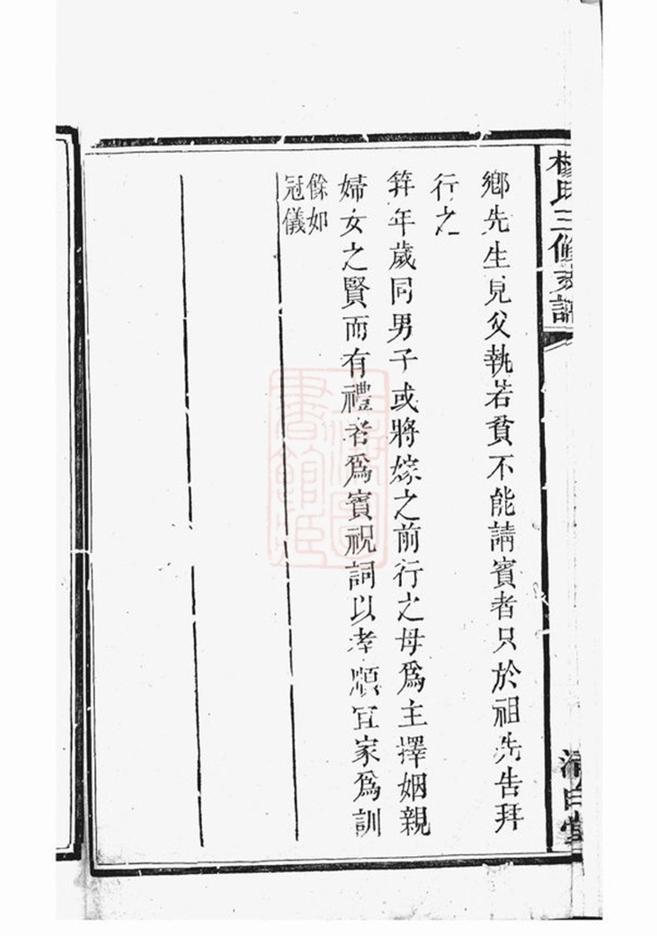 楊氏三修支譜
清白堂
鄉先生見父執若貧不能請賓者只於祖先告拜
行之
筓年歲同男子或將嫁之前行之母爲主擇姻親
婦女之賢而有禮者爲賓祝詞以孝順宜家爲訓
餘如
冠儀